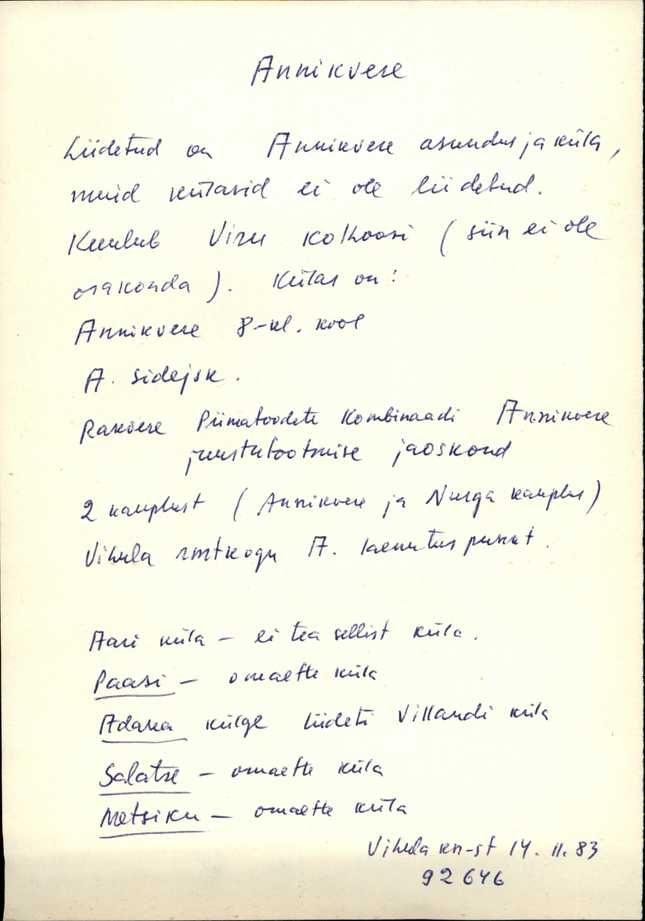 Annikvere
Liidetud on Annikvere asundus ja küla,
muid külasid ei ole liidetud.
Kuulub Viru kolhoosi (siin ei ole
osakonda). Külas on:
Annikvere 8-kl. kool
A. sidejsk.
Rakvere Piimatoodete Kombinaadi Annikvere
juustutootmise jaoskond
2 kauplust (Annikvere ja Nurga kauplus)
Vihula rmtkogu A. laenutuspunkt.
Aasi küla – ei tea sellist küla.
Paasi – omaette küla
Adaka külge liideti Villandi küla
Salatse – omaette küla
Metsiku – omaette küla
Vihula kn-st 14. 11. 83
92646